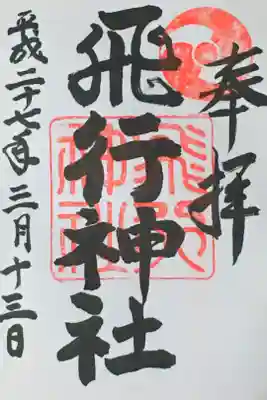 奉拝
飛行神社
飛行神社
平成二十七年三月十三日